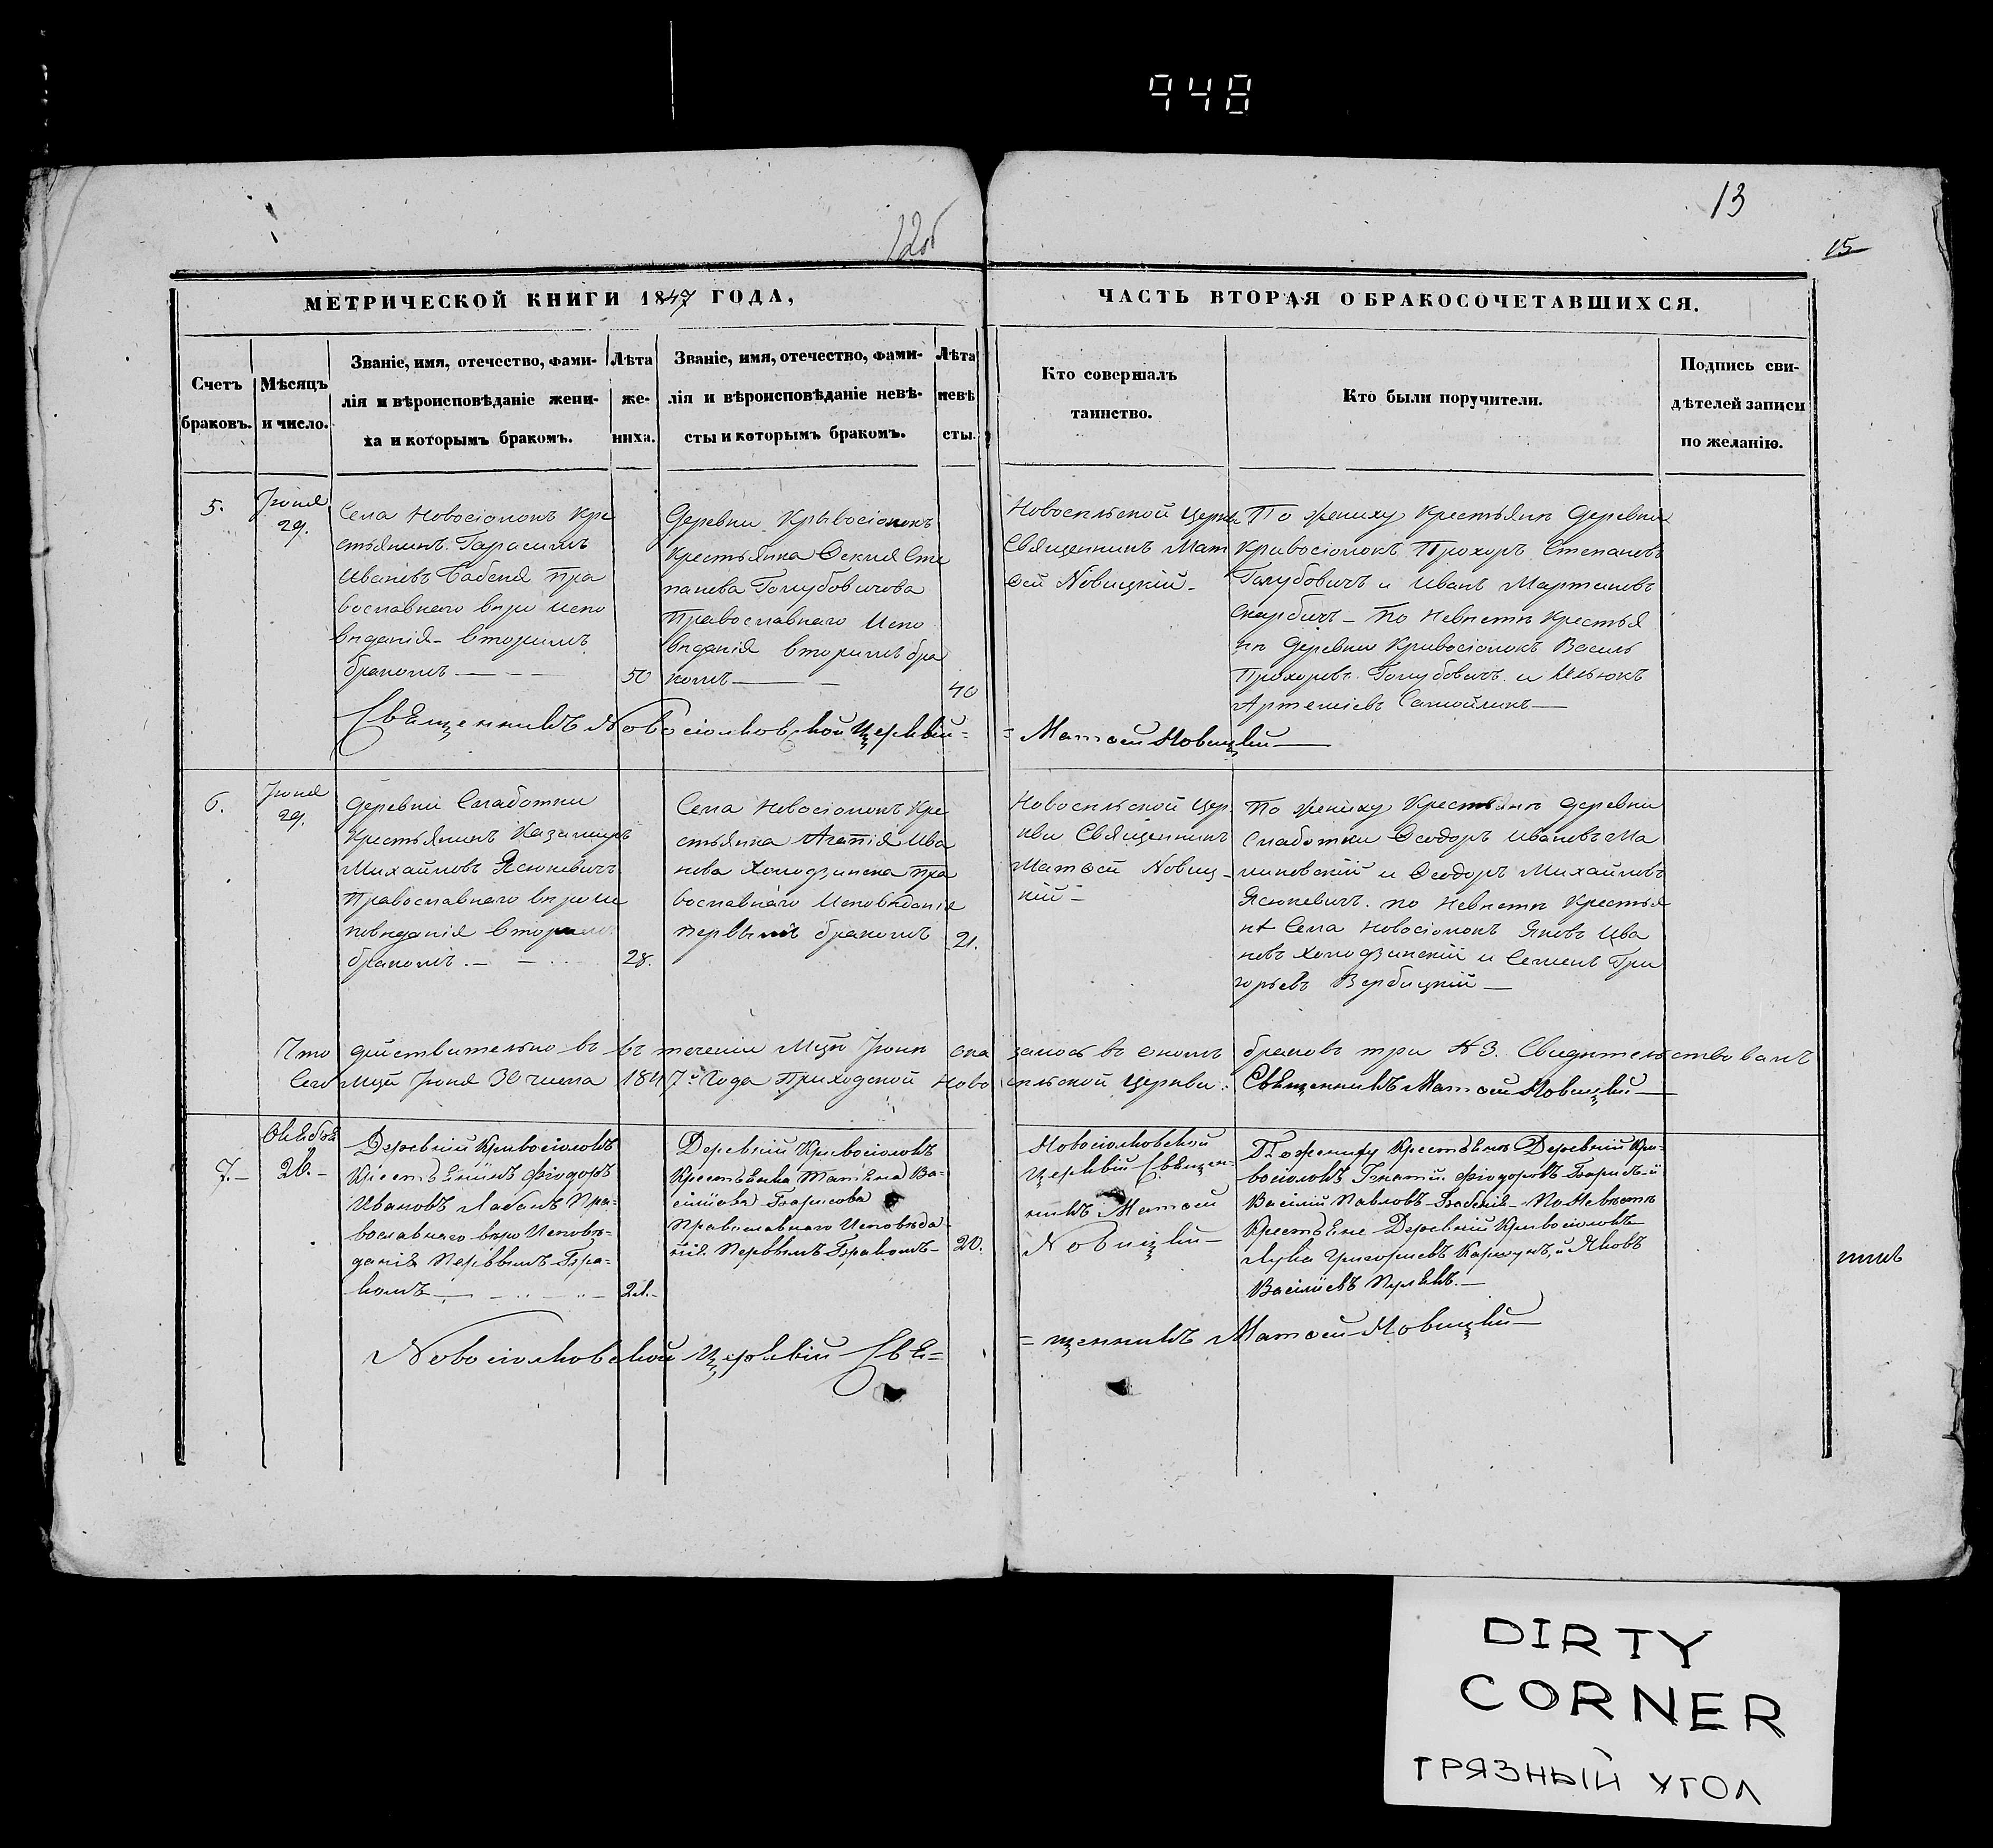 948
13
12об
15
МЕТРИЧЕСКОЙ КНИГИ 1847 ГОДА,
ЧАСТЬ ВТОРАЯ О БРАКОСОЧЕТАВШИХСЯ.
Счетъ
браковъ.
Мѣсяцъ
и число.
Званіе, имя, отечество, фами-
лія и вѣроисповѣданіе жени-
ха и которымъ бракомъ.
Лѣта
же-
ниха.
Званіе, имя, отечество, фами-
лія и вѣроисповѣданіе невѣ-
сты и которымъ бракомъ.
Лѣта
невѣ
сты.
Кто совершалъ
таинство.
Кто были поручители.
Подпись сви-
дѣтелей записи
по желанію.
5.
Іюня
29.
Села Новосіолокъ Кре
стьянинъ Гарасимъ
Ивановъ Бабеня пра
вославнаго вѣро испо
вѣданія - вторимъ
бракомъ
50
Деревни Крывосіолокъ
Крестьянка Ѳекля Сте
панова Голубовичова
Православнаго Испо
вѣданія вторимъ бра
комъ
40
Новосельской Церкви
Священникъ Мат
ѳей Новицкій -
По жениху Крестьянѣ деревни
Кривосіолокъ Прохоръ Степановъ
Голубовичъ и Иванъ Мартиновъ
Скарбичъ - По Невѣстѣ Крестья
нѣ Деревни Кривосіолокъ Василь
Прохоровъ Голубовичъ и Ильюкъ
Артеміевъ Самойликъ
Свѣщенникъ Новосіолковской Церквіи =
= Матѳей Новицкій
6.
Іюня
29.
Деревни Слаботки
Крестьянинъ Казимиръ
Михайловъ Ясюкевичъ
Православнаго вѣро ис
повѣданія вторимъ
бракомъ
28.
Села Новосіолокъ Кре
стьянка Агапія Ива
нова Холодзинска пра
вославнаго Исповѣданія
первымъ бракомъ
21.
Новосельской Цер
кви Священникъ
Матѳей Новиц-
кій -
По жениху Крестьянѣ деревни
Слаботки Ѳеодоръ Ивановъ Ма
линовскій и Ѳеодоръ Михайловъ
Ясюкевичъ. по Невѣстѣ Крестья
нѣ Села Новосіолокъ Яковъ Ива
новъ Холодзинскій и Семенъ Гри
горьевъ Вербицкій
Что дѣйствительно въ въ теченіи Мцѣ Іюнѣ ока залось въ ономъ браковъ три № 3. Свидѣтельствовалъ
Сего Мця Іюня 30 числа 1847го Года Приходской Ново сельской Церкви: Свѣщенникъ Матѳей Новицкій
7.
Октября
26.
Деревніи Кривосіолокъ
Крестьянинъ Фіодоръ
Ивановъ Лабанъ Пра-
вославнаго вѣро Исповѣ-
данія Первымъ Бра-
комъ
21.
Деревніи Кривосіолокъ
Крестьянка Татьяна Ва-
силіова Борисова
Православнаго Исповѣда-
нія Первымъ Бракомъ
20.
Новосіолковской
Церквіи Священ-
никъ Матѳей
Новицкій
По жениху Крестьяне Деревніи Кри-
восіолокъ Игнатій Фіодоровъ Барисъ и
Василій Павловъ Бабеня - По Невѣстѣ
Крестьяне Деревніи Кривосіолокъ
Лука Григоріевъ и Яковъ
Василіевъ
Новосіолковской Церквіи Свя=
= щенникъ Матѳей Новицкій
DIRTY
CORNER
ГРЯЗНЫЙ УГОЛ